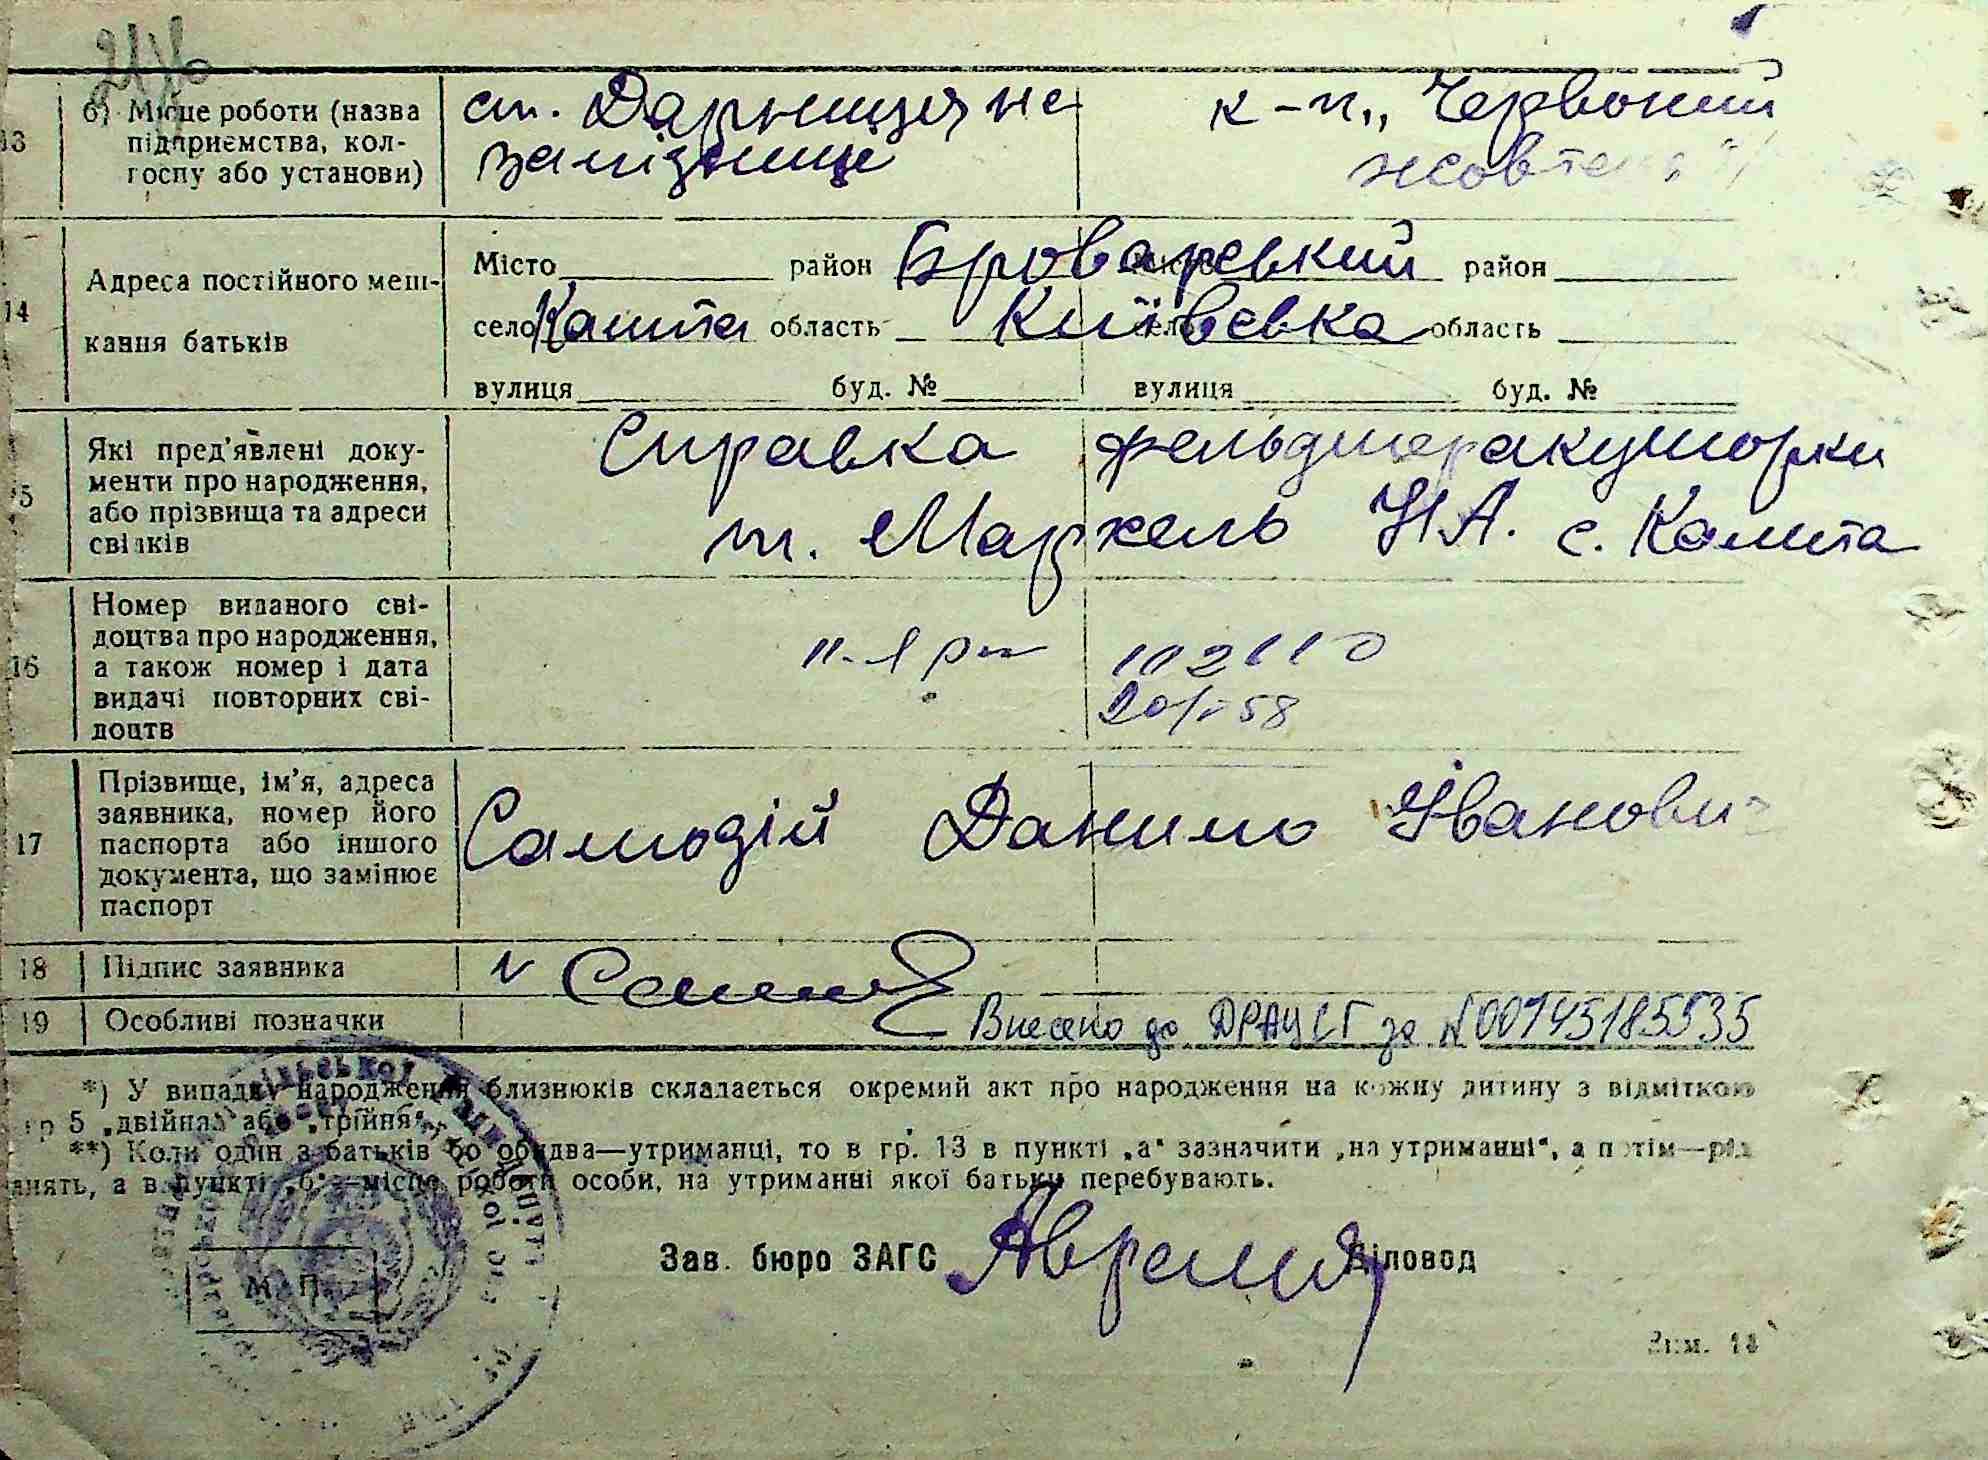 13 б) Місце роботи (назва підприємства, колгоспу або установи)
ст. Дарниця на к-п „Червоний
залізниці жовтень"
14 Адреса постійного мешкання батьків
Місто район Броварський район
село Калита область Київська село область
вулиця буд. № вулиця буд. №
15 Які пред'явлені документи про народження, або прізвища та адреси свідків
Справка фельдшеракушорки
т. Маркель Н А. с. Калита
16 Номер виданого свідоцтва про народження, а також номер і дата видачі повторних свідоцтв
102110
58
17 Прізвище, ім'я, адреса заявника, номер його паспорта або іншого документа, що замінює паспорт
Самодій Данило Іванович
18 Підпис заявника
19 Особливі позначки
Внесено до ДРАЦСГ за №00145185535
*) У випадку народження близнюків складається окремий акт про народження на кожну дитину з відміткою
гр 5 „двійна" або „трійня".
**) Коли один з батьків бо обидва—утриманці, то в гр. 13 в пункті „а" зазначити „на утриманні", а потім—рід
занять, а в пункті „б"—місце роботи особи, на утриманні якої батьки перебувають.
Зав. бюро ЗАГС Діловод
М. П.
Зам. 14